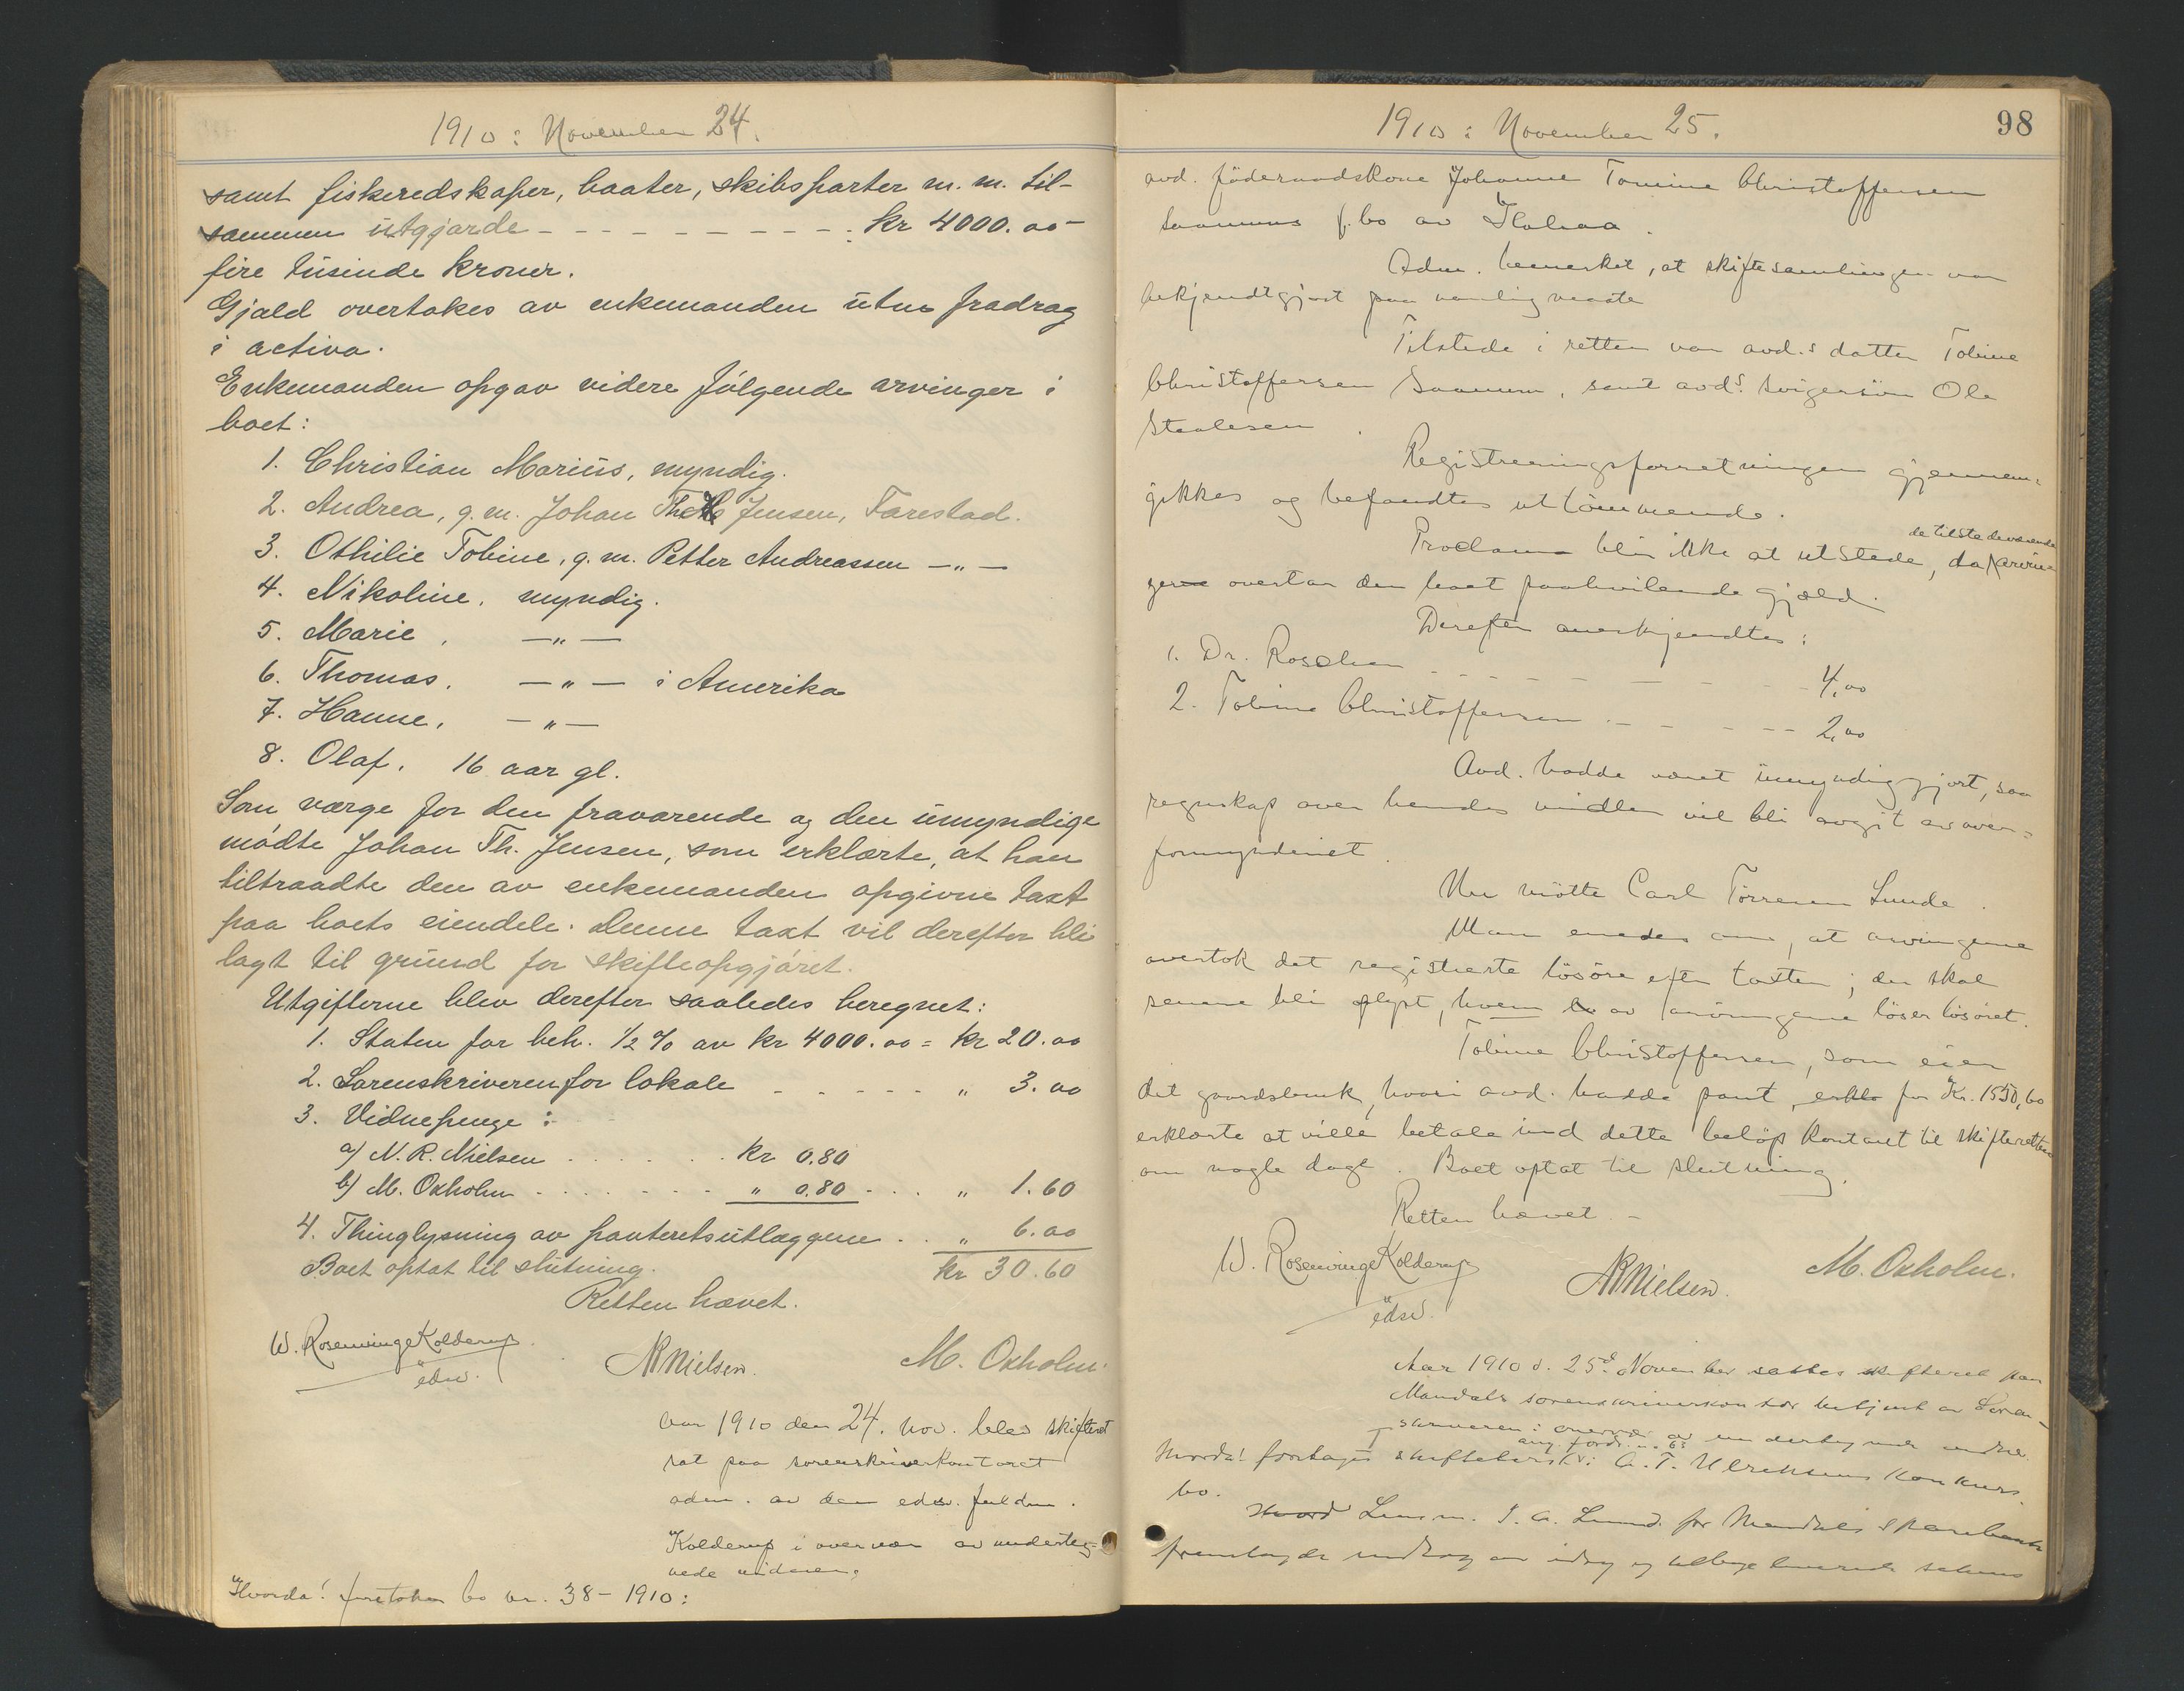 1910: November 24.
samt fiskeredskaper, baater, skibsparter m. m. til-
sammen utgjørde - - - - - - - - - : kr 4000.00 -
fire tusinde kroner.
Gjæld overtakes av enkemanden uten fradrag
i activa.
Enkemanden opgav videre følgende arvinger i
boet:
1. Christian Marius, myndig.
2. Andrea, g. m. Johan Th. Jensen, Farestad.
3. Othilie Tobine, g. m. Petter Andreassen —„—
4. Nikoline, myndig.
5. Marie, —„—
6. Thomas, —„— i Amerika
7. Hanne, —„—
8. Olaf, 16 aar gl.
Som værge for den fraværende og den umyndige
mødte Johan Th. Jensen, som erklærte, at han
tiltraadte den av enkemanden opgivne taxt
paa boets eiendele. Denne taxt vil derefter bli
lagt til grund for skifteopgjøret.
Utgifterne blev derefter saaledes beregnet:
1. Staten for beh. 1/2 % av kr 4000.00 = kr 20.00
2. Sorenskriveren for lokale - - - - - „ 3.00
3. Vidnepenge:
a) N. R. Nielsen . . . . . . kr 0.80
b) M. Oxholm . . . . . . . „ 0.80 . . . „ 1.60
4. Thinglysning av panteretsutlæggene . . „ 6.00
Boet optat til slutning. kr 30.60
Retten hævet.
W. Rosenvinge Kolderup NRNielsen. M. Oxholm.
edsv.
Aar 1910 den 24. nov. blev skifteret
sat paa sorenskriverkontoret
adm. av den edsv. fuldm.
Kolderup i overvær av underteg-
nede vidner,
Hvorda! foretokes bo nr. 38 - 1910:
1910: November 25. 98
avd. føderaadskone Johanne Tomine Christoffersen
Saanums f. bo av Halsaa.
Adm. bemerket, at skiftesamlingen var
bekjendtgjort paa vanlig maate
Tilstede i retten var avd.s datter Tobine
Christoffersen Saanum, samt avds. svigersøn Ole
Staalesen.
Registreringsforretningen gjennem-
gikkes og befandtes uttømmende.
de tilstedeværende
Proclama blir ikke at utstede, da arvin-
gerne overtar den boet paahvilende gjæld.
Derefter anerkjendtes:
1. Dr. - - - - - - - 4,00
2. Tobine Christoffersen - - - - - 2,00
Avd. hadde været umyndiggjort, saa
regnskap over hendes midler vil bli avgit av over-
formynderiet.
Nu møtte Carl Tørresen Lunde.
Man enedes om, at arvingerne
overtok det registrerte løsøre efter taxten; der skal
senere bli oplyst, hvem av arvingerne løser løsøret.
Tobine Christoffersen, som eier
det gaardsbruk, hvori avd. hadde pant, for Kr. 1550,60
erklærte at ville betale ind dette beløp kontant til skifteretten
om nogle dage. Boet optat til slutning.
Retten hævet. -
W. Rosenvinge Kolderup NRNielsen. M. Oxholm.
edsv.
Aar 1910 d. 25d November sattes skifteret paa
Mandals sorenskriverkontor betjent av Soren-
skriveren i overvær av undertegnede vidner.
ang. fordr. n. 63
Hvorda! foretages skiftebehdl. i A. T. Ulriksens konkurs-
bo.
Lensm. S. A. Lund for Mandals Sparebank
fremlagde utdrag av